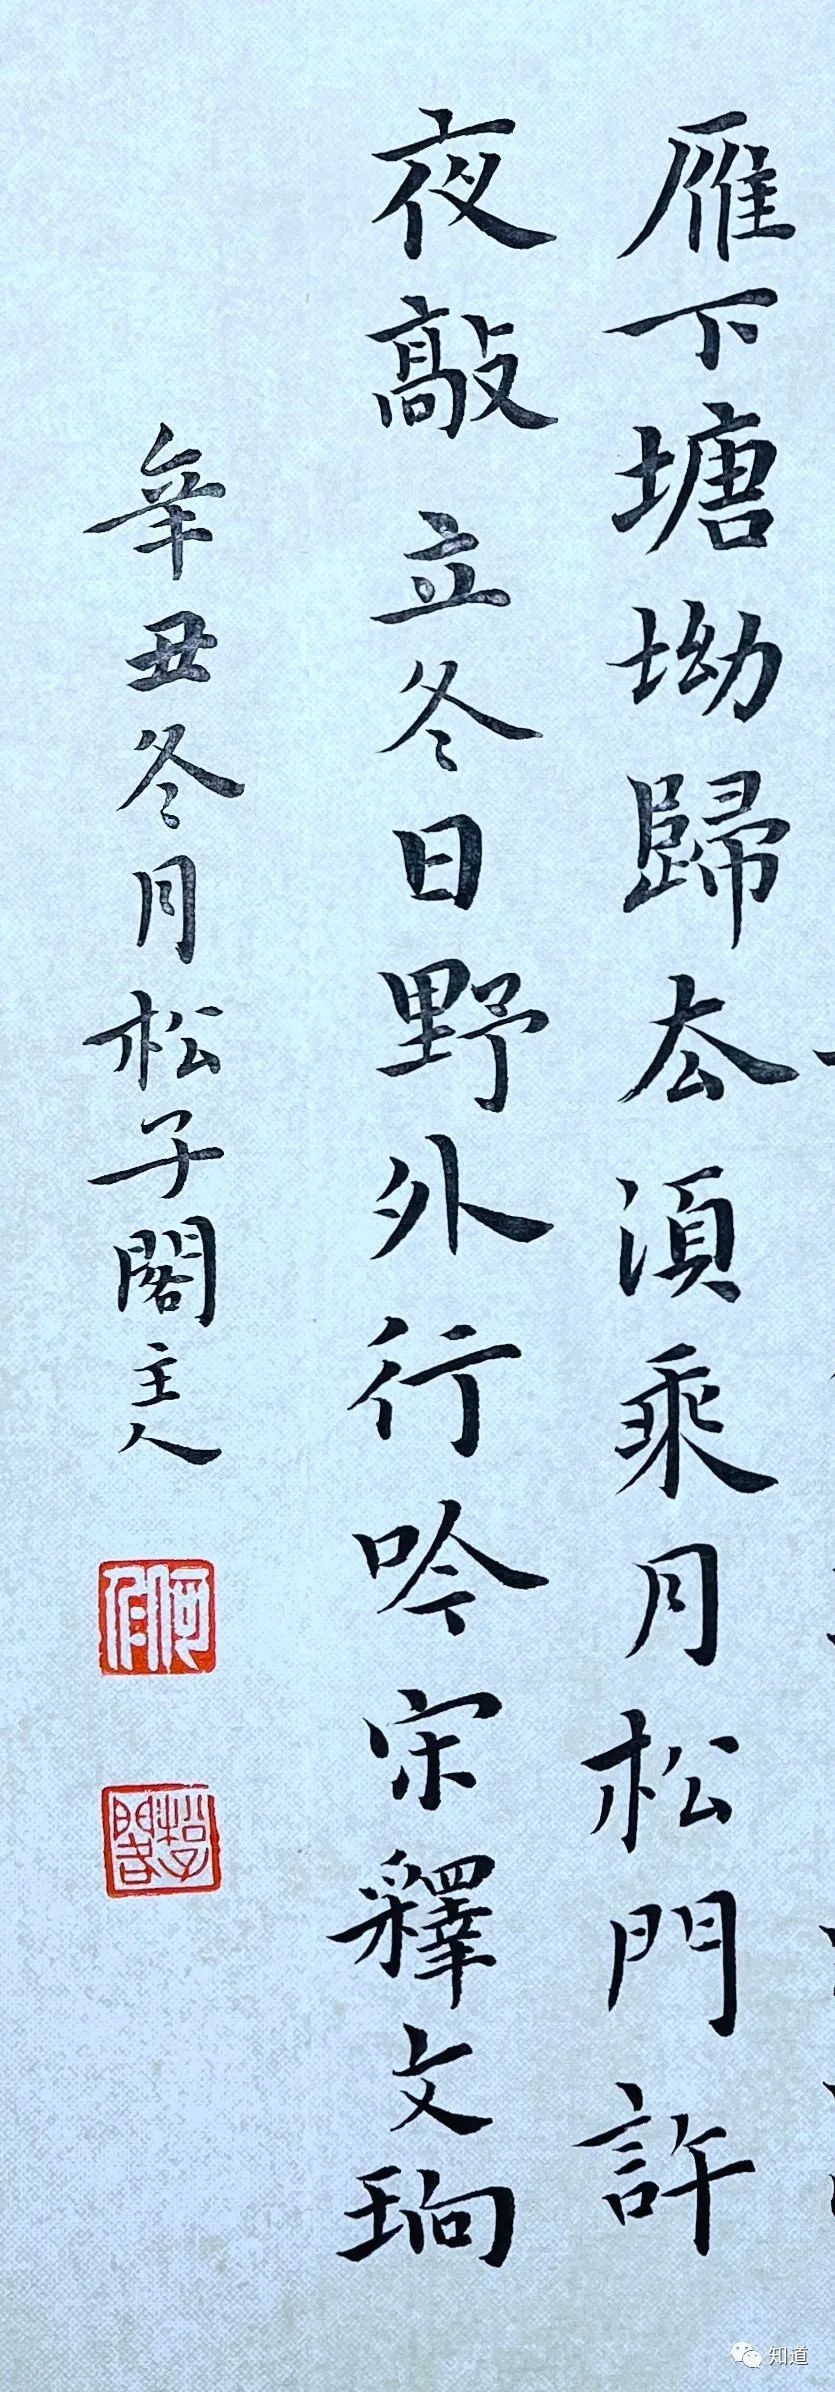 雁下塘坳歸去須乘月松門許
夜敲 立冬日野外行吟宋釋文珦
辛丑冬月松子閣主人
松子閣
知道